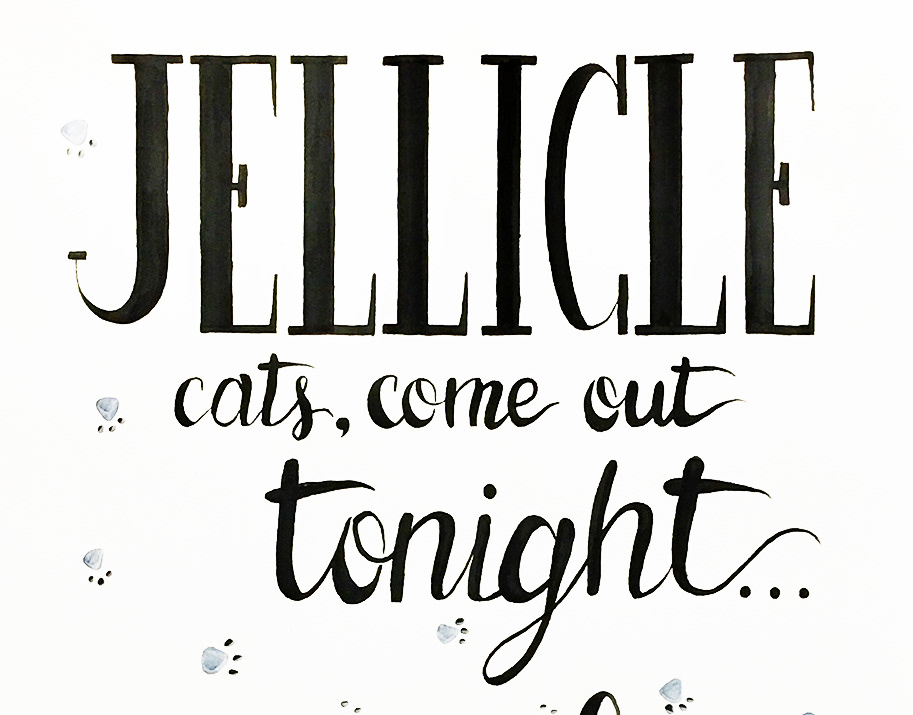 JELLICLE
cats, come out
tonight...